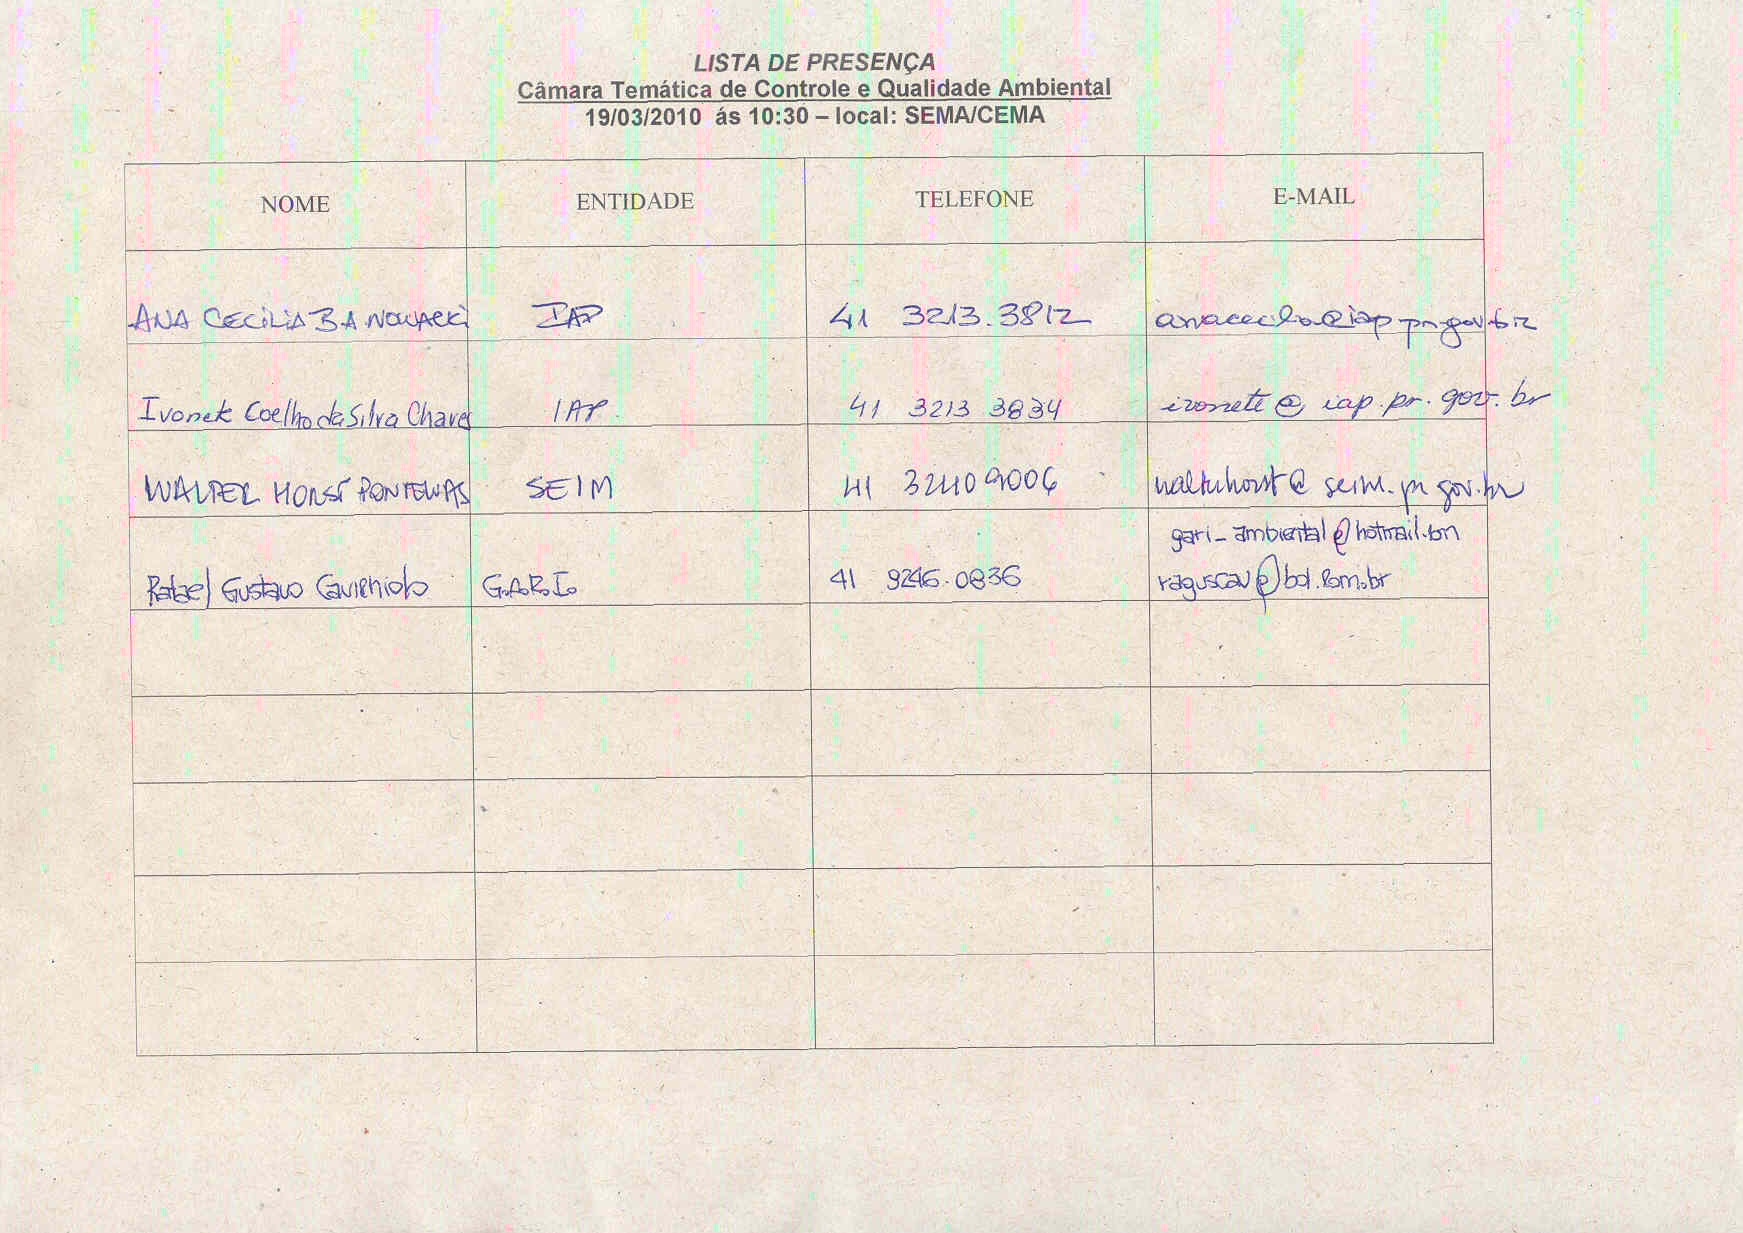 LISTA DE PRESENÇA
Câmara Temática de Controle e Qualidade Ambiental
19/03/2010 ás 10:30 – local: SEMA/CEMA
NOME ENTIDADE TELEFONE E-MAIL
ANA CECÍLIA B. A. NOWACKI IAP 41 3213.3812 anacecilia@iap.pr.gov.br
Ivonete Coelho da Silva Chaves IAP 41 3213 3834 ivonete@iap.pr.gov.br
WALTER HORST SEIM 41 32109006 walterhorst@seim.pr.gov.br
gari_ambiental@hotmail.com
Rafael Gustavo G.A.R.I. 41 9246.0836 raguscav@bol.com.br